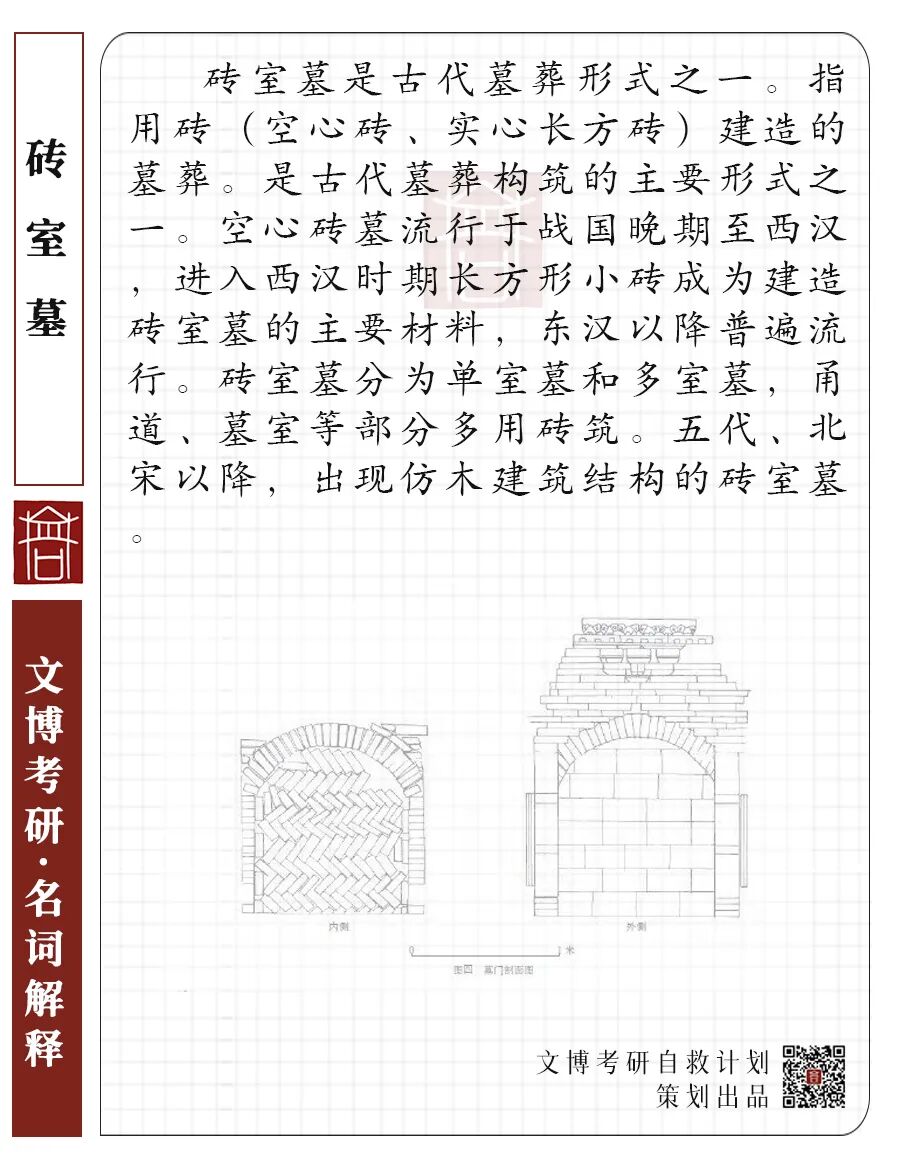 砖室墓
砖室墓是古代墓葬形式之一。指
用砖（空心砖、实心长方砖）建造的
墓葬。是古代墓葬构筑的主要形式之
一。空心砖墓流行于战国晚期至西汉
，进入西汉时期长方形小砖成为建造
砖室墓的主要材料，东汉以降普遍流
行。砖室墓分为单室墓和多室墓，甬
道、墓室等部分多用砖筑。五代、北
宋以降，出现仿木建筑结构的砖室墓
。
文博考研·名词解释
内侧
外侧
0 1 米
图四 墓门剖面图
文博考研自救计划
策划出品